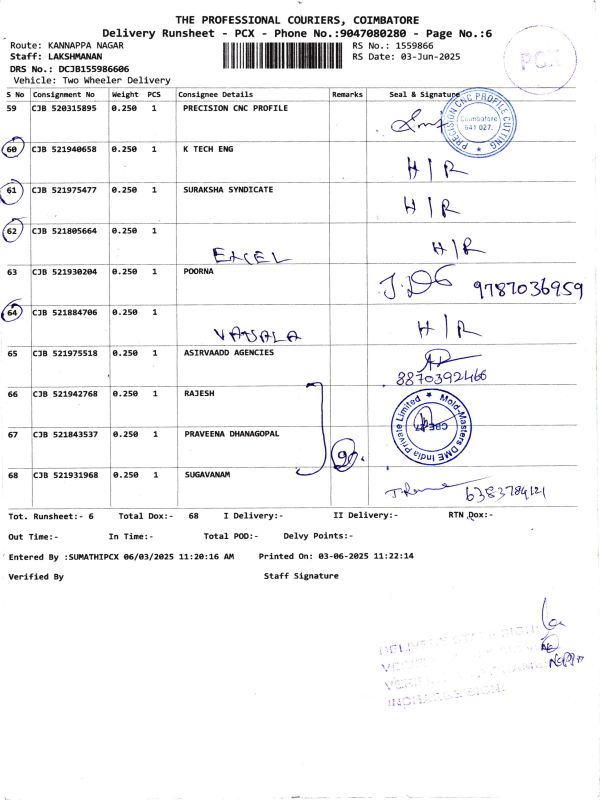 THE PROFESSIONAL COURIERS, COIMBATORE
Delivery Runsheet - PCX - Phone No.:9047080280 - Page No.:6
Route: KANNAPPA NAGAR
RS No.: 1559866
Staff: LAKSHMANAN
RS Date: 03-Jun-2025
DRS No.: DCJB155986606
Vehicle: Two Wheeler Delivery
PCX
S No Consignment No Weight PCS Consignee Details Remarks Seal & Signature
59 CJB 520315895 0.250 1 PRECISION CNC PROFILE
PRECISION CNC PROFILE CUTTING
Coimbatore
641 027.
60 CJB 521940658 0.250 1 K TECH ENG H/R
61 CJB 521975477 0.250 1 SURAKSHA SYNDICATE H/R
62 CJB 521805664 0.250 1 EXCEL H/R
63 CJB 521930204 0.250 1 POORNA 9787036959
64 CJB 521884706 0.250 1 VATSALA H/R
65 CJB 521975518 0.250 1 ASIRVAADD AGENCIES
8870392466
66 CJB 521942768 0.250 1 RAJESH
67 CJB 521843537 0.250 1 PRAVEENA DHANAGOPAL
Mold-Masters DME India Private Limited
68 CJB 521931968 0.250 1 SUGAVANAM 6383784121
Tot. Runsheet:- 6 Total Dox:- 68 I Delivery:- II Delivery:- RTN Dox:-
Out Time:- In Time:- Total POD:- Delvy Points:-
Entered By :SUMATHIPCX 06/03/2025 11:20:16 AM Printed On: 03-06-2025 11:22:14
Verified By Staff Signature